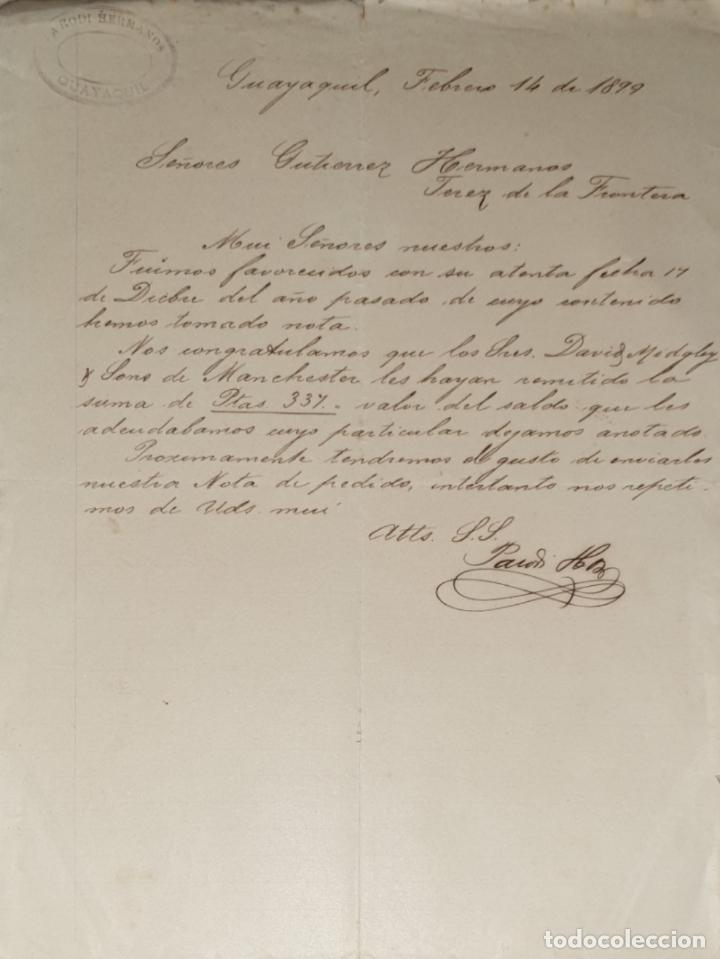 PARODI HERMANOS
GUAYAQUIL
Guayaquil, Febrero 14 de 1899
Señores Gutierrez Hermanos
Jerez de la Frontera
Mui Señores nuestros:
Fuimos favorecidos con su atenta fecha 17
de Dicbre del año pasado de cuyo contenido
hemos tomado nota.
Nos congratulamos que los Sres. David Midgley
& Sons de Manchester les hayan remitido la
suma de Ptas 337.- valor del saldo que les
adeudabamos cuyo particular dejamos anotado
Proximamente tendremos el gusto de enviarles
nuestra Nota de pedido, intertanto nos repeti-
mos de Uds. mui
Atts. S.S.
Parodi Hos
todocoleccion